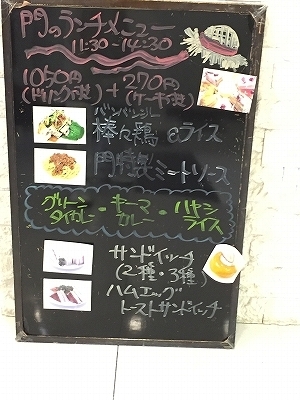 門のランチメニュー
11:30-14:30
1050円 + 270円
(ドリンク付) (ケーキ付)
バンバンジー
棒々鶏 &ライス
門特製ミートソース
グリーン
タイカレー・キーマ
カレー・ハヤシ
ライス
サンドイッチ
(2種・3種)
ハムエッグ
トーストサンドイッチ